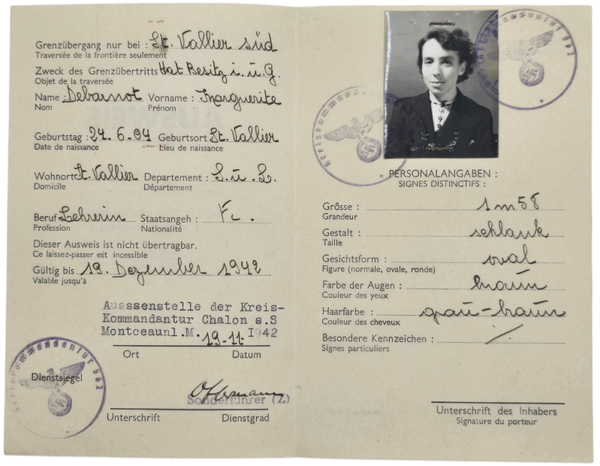 Grenzübergang nur bei : St. Vallier süd
Traversée de la frontière seulement
Zweck des Grenzübertritts Hat Besitz i. u. G.
Objet de la traversée
Name Debarnot Vorname : Marguerite
Nom Prénom
Geburtstag : 24.6.04 Geburtsort St. Vallier
Date de naissance Lieu de naissance
Wohnort St. Vallier Departement : S. u. L.
Domicile Département
Beruf Lehrerin Staatsangeh : Fr.
Profession Nationalité
Dieser Ausweis ist nicht übertragbar.
Ce laissez-passer est incessible
Gültig bis 19. Dezember 1942
Valable jusqu'à
Aussenstelle der Kreis-
Kommandantur Chalon s.S
Montceaunl.M. 19-11- 1942
Ort Datum
Dienstsiegel
Sonderführer (Z)
Unterschrift Dienstgrad
Kreiskommandantur
PERSONALANGABEN :
SIGNES DISTINCTIFS :
Grösse : 1m58
Grandeur
Gestalt : schlank
Taille
Gesichtsform : oval
Figure (normale, ovale, ronde)
Farbe der Augen : braun
Couleur des yeux
Haarfarbe : grau-braun
Couleur des cheveux
Besondere Kennzeichen : /.
Signes particuliers
Unterschrift des Inhabers
Signature du porteur